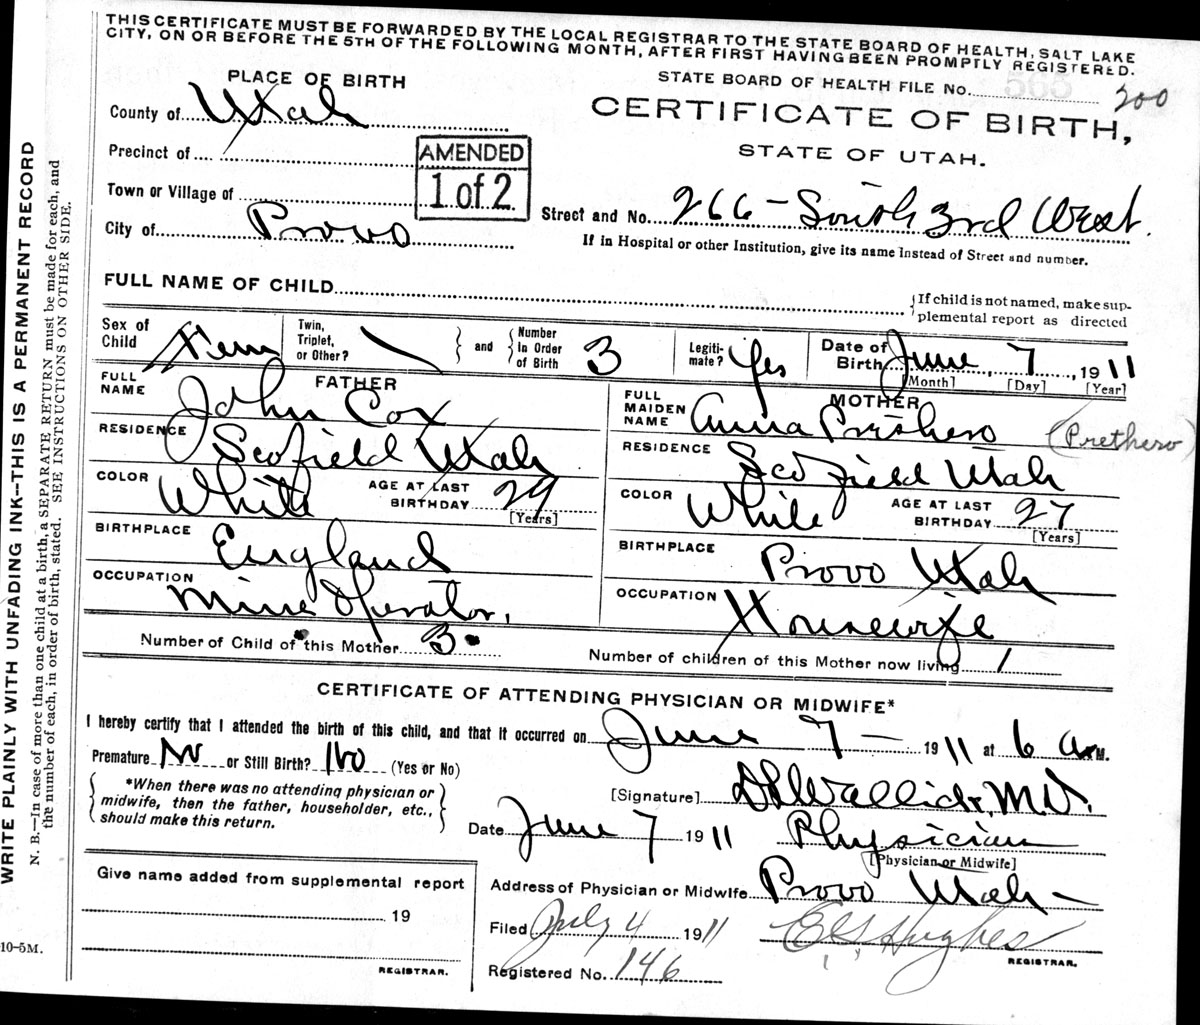 THIS CERTIFICATE MUST BE FORWARDED BY THE LOCAL REGISTRAR TO THE STATE BOARD OF HEALTH, SALT LAKE
CITY, ON OR BEFORE THE 5TH OF THE FOLLOWING MONTH, AFTER FIRST HAVING BEEN PROMPTLY REGISTERED.
PLACE OF BIRTH
STATE BOARD OF HEALTH FILE No. 200
565
County of Utah
CERTIFICATE OF BIRTH,
STATE OF UTAH.
Precinct of
AMENDED
1 of 2
Town or Village of
Street and No. 266 - South 3rd West.
City of Provo
If in Hospital or other Institution, give its name instead of Street and number.
FULL NAME OF CHILD
{If child is not named, make sup-
plemental report as directed
Sex of Child Fem
Twin, Triplet, or Other? \
} and {
Number In Order of Birth 3
Legiti-mate? Yes
Date of Birth June, 7, 1911
[Month] [Day] [Year]
FULL NAME FATHER John Cox
FULL MAIDEN NAME MOTHER Anna Prethero (Prethero)
RESIDENCE Scofield Utah
RESIDENCE Scofield Utah
COLOR White AGE AT LAST BIRTHDAY 29 [Years]
COLOR White AGE AT LAST BIRTHDAY 27 [Years]
BIRTHPLACE England
BIRTHPLACE Provo Utah
OCCUPATION Mine Operator.
OCCUPATION Housewife
Number of Child of this Mother 3
Number of children of this Mother now living 1
CERTIFICATE OF ATTENDING PHYSICIAN OR MIDWIFE*
I hereby certify that I attended the birth of this child, and that it occurred on June 7 - 1911 at 6 a M.
Premature No or Still Birth? No (Yes or No)
{ *When there was no attending physician or
midwife, then the father, householder, etc.,
should make this return. }
[Signature] M.D.
Date June 7 1911 Physician
[Physician or Midwife]
Give name added from supplemental report
19
REGISTRAR.
Address of Physician or Midwife Provo Utah -
Filed July 4 1911 Hughes
REGISTRAR.
Registered No. 146
10-5M.
WRITE PLAINLY WITH UNFADING INK--THIS IS A PERMANENT RECORD
N. B.—In case of more than one child at a birth, a SEPARATE RETURN must be made for each, and
the number of each, in order of birth, stated. SEE INSTRUCTIONS ON OTHER SIDE.